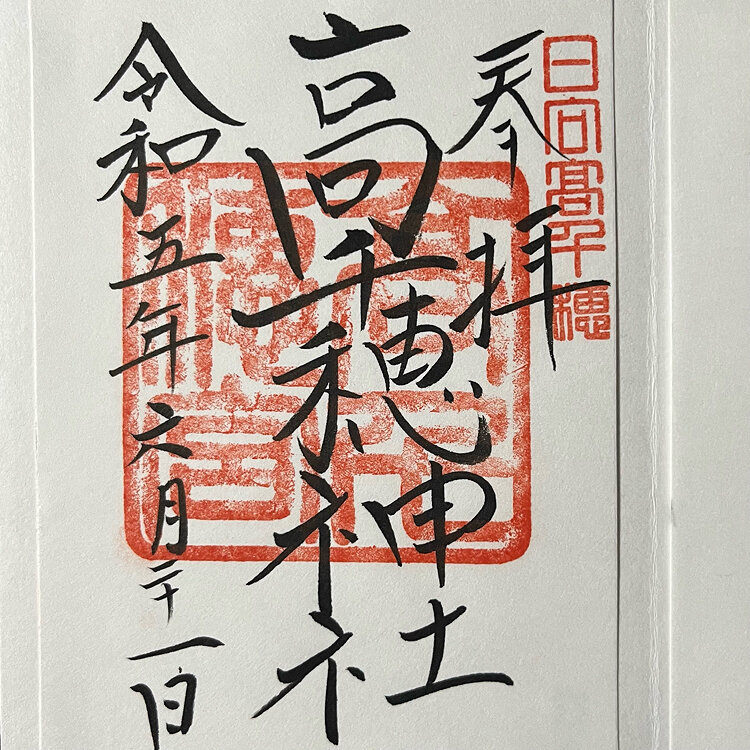 日向高千穂
奉拝
高千穂神社
令和五年六月二十一日